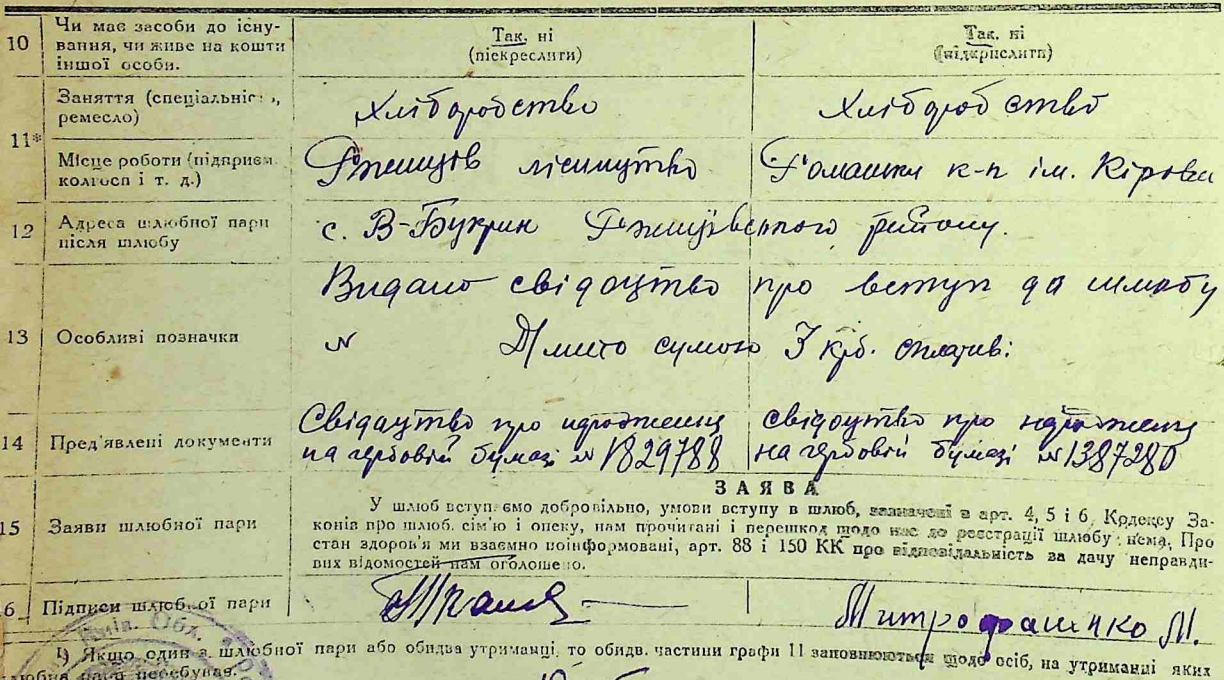 10 Чи має засоби до існу-
вання, чи живе на кошти
іншої особи.
Так, ні
(піскреслити)
Так, ні
(підкрислити)
11* Заняття (спеціальність,
ремесло)
Хліборобство
Хліборобство
Місце роботи (підприєм.
колгосп і т. д.)
Ржищів лісництво
Ромашки к-п ім. Кірова
12 Адреса шлюбної пари
після шлюбу
с. В-Букрин Ржищівського району.
13 Особливі позначки
Видано свідоцтво про вступ до шлюбу
№ Д/мито сумою 3 крб. сплачені
14 Пред'явлені документи
Свідоцтво про народження
на гербовій бумазі № 1829788
Свідоцтво про народження
на гербовій бумазі № 1387280
ЗАЯВА
15 Заяви шлюбної пари
У шлюб вступаємо добровільно, умови вступу в шлюб, зазначені в арт. 4, 5 і 6, Кодексу За-
конів про шлюб, сім'ю і опеку, нам прочитані і перешкод щодо нас до реєстрації шлюбу нема. Про
стан здоров'я ми взаємно поінформовані, арт. 88 і 150 КК про відповідальність за дачу неправди-
вих відомостей нам оголошено.
6 Підписи шлюбної пари
Митрофаненко М.
Київ. Обл.
1) Якщо один з шлюбної пари або обидва утриманці, то обидві частини графи 11 заповнюються щодо осіб, на утриманні яких
шлюбна пара перебував.